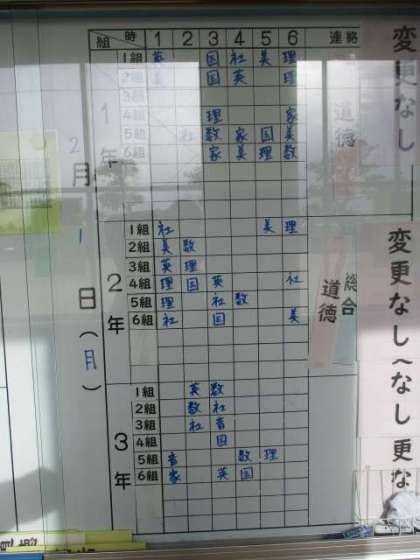 組 時 1 2 3 4 5 6 連絡
1年
1組 英 国 社 美 理
2組 美 国 英 理
3組
4組 理 家
5組 社 数 家 国 美
6組 家 美 理 数
道徳
変更なし
2年
1組 社 美 理
2組 美 数
3組 英 理
4組 理 国 英 社
5組 理 社 数
6組 社 国 美
総合
道徳
変更なし
3年
1組 英 数
2組 数 社
3組 社 音
4組 国
5組 音 数 理
6組 家 英 国
へなし
更な
2月1日(月)